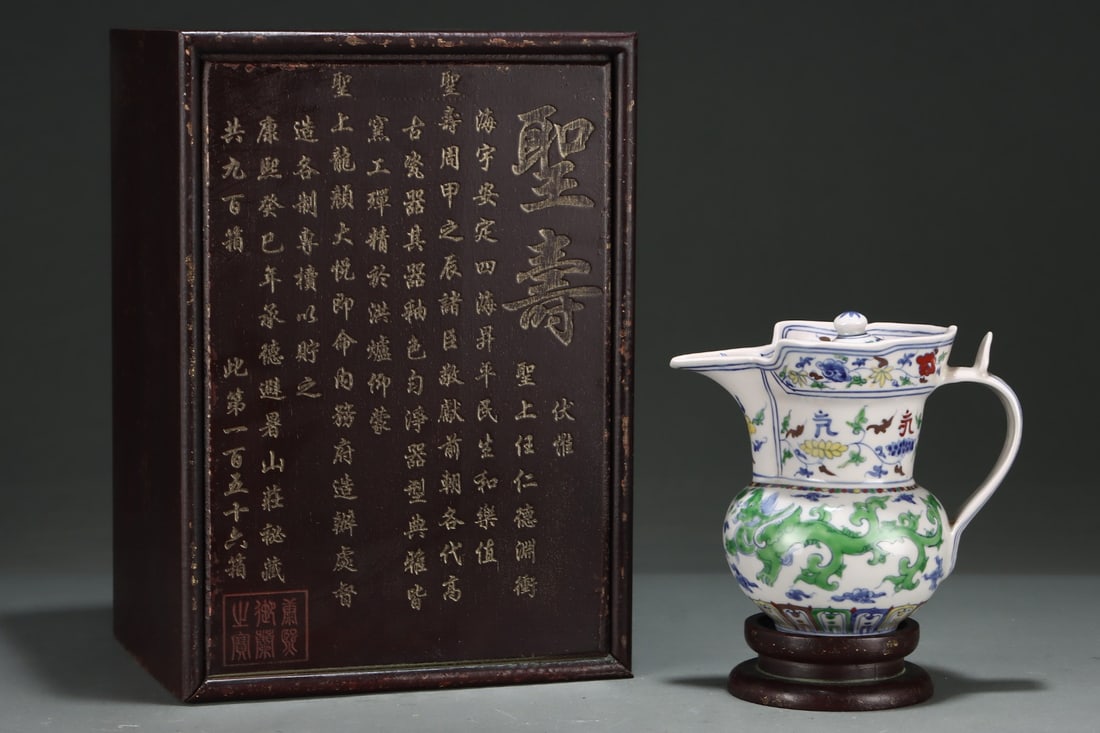 聖壽
伏惟
聖上任仁德淵衝
海宇安定四海昇平民生和樂值
聖壽周甲之辰諸臣敬獻前朝各代高
古瓷器其器釉色勻淨器型典雅皆
窯工殫精於洪爐仰蒙
聖上龍顏大悅即命內務府造辦處督
造各制專櫝以貯之
康熙癸巳年承德避暑山莊秘藏
共九百箱 此第一百五十六箱
康熙
御覽
之寶